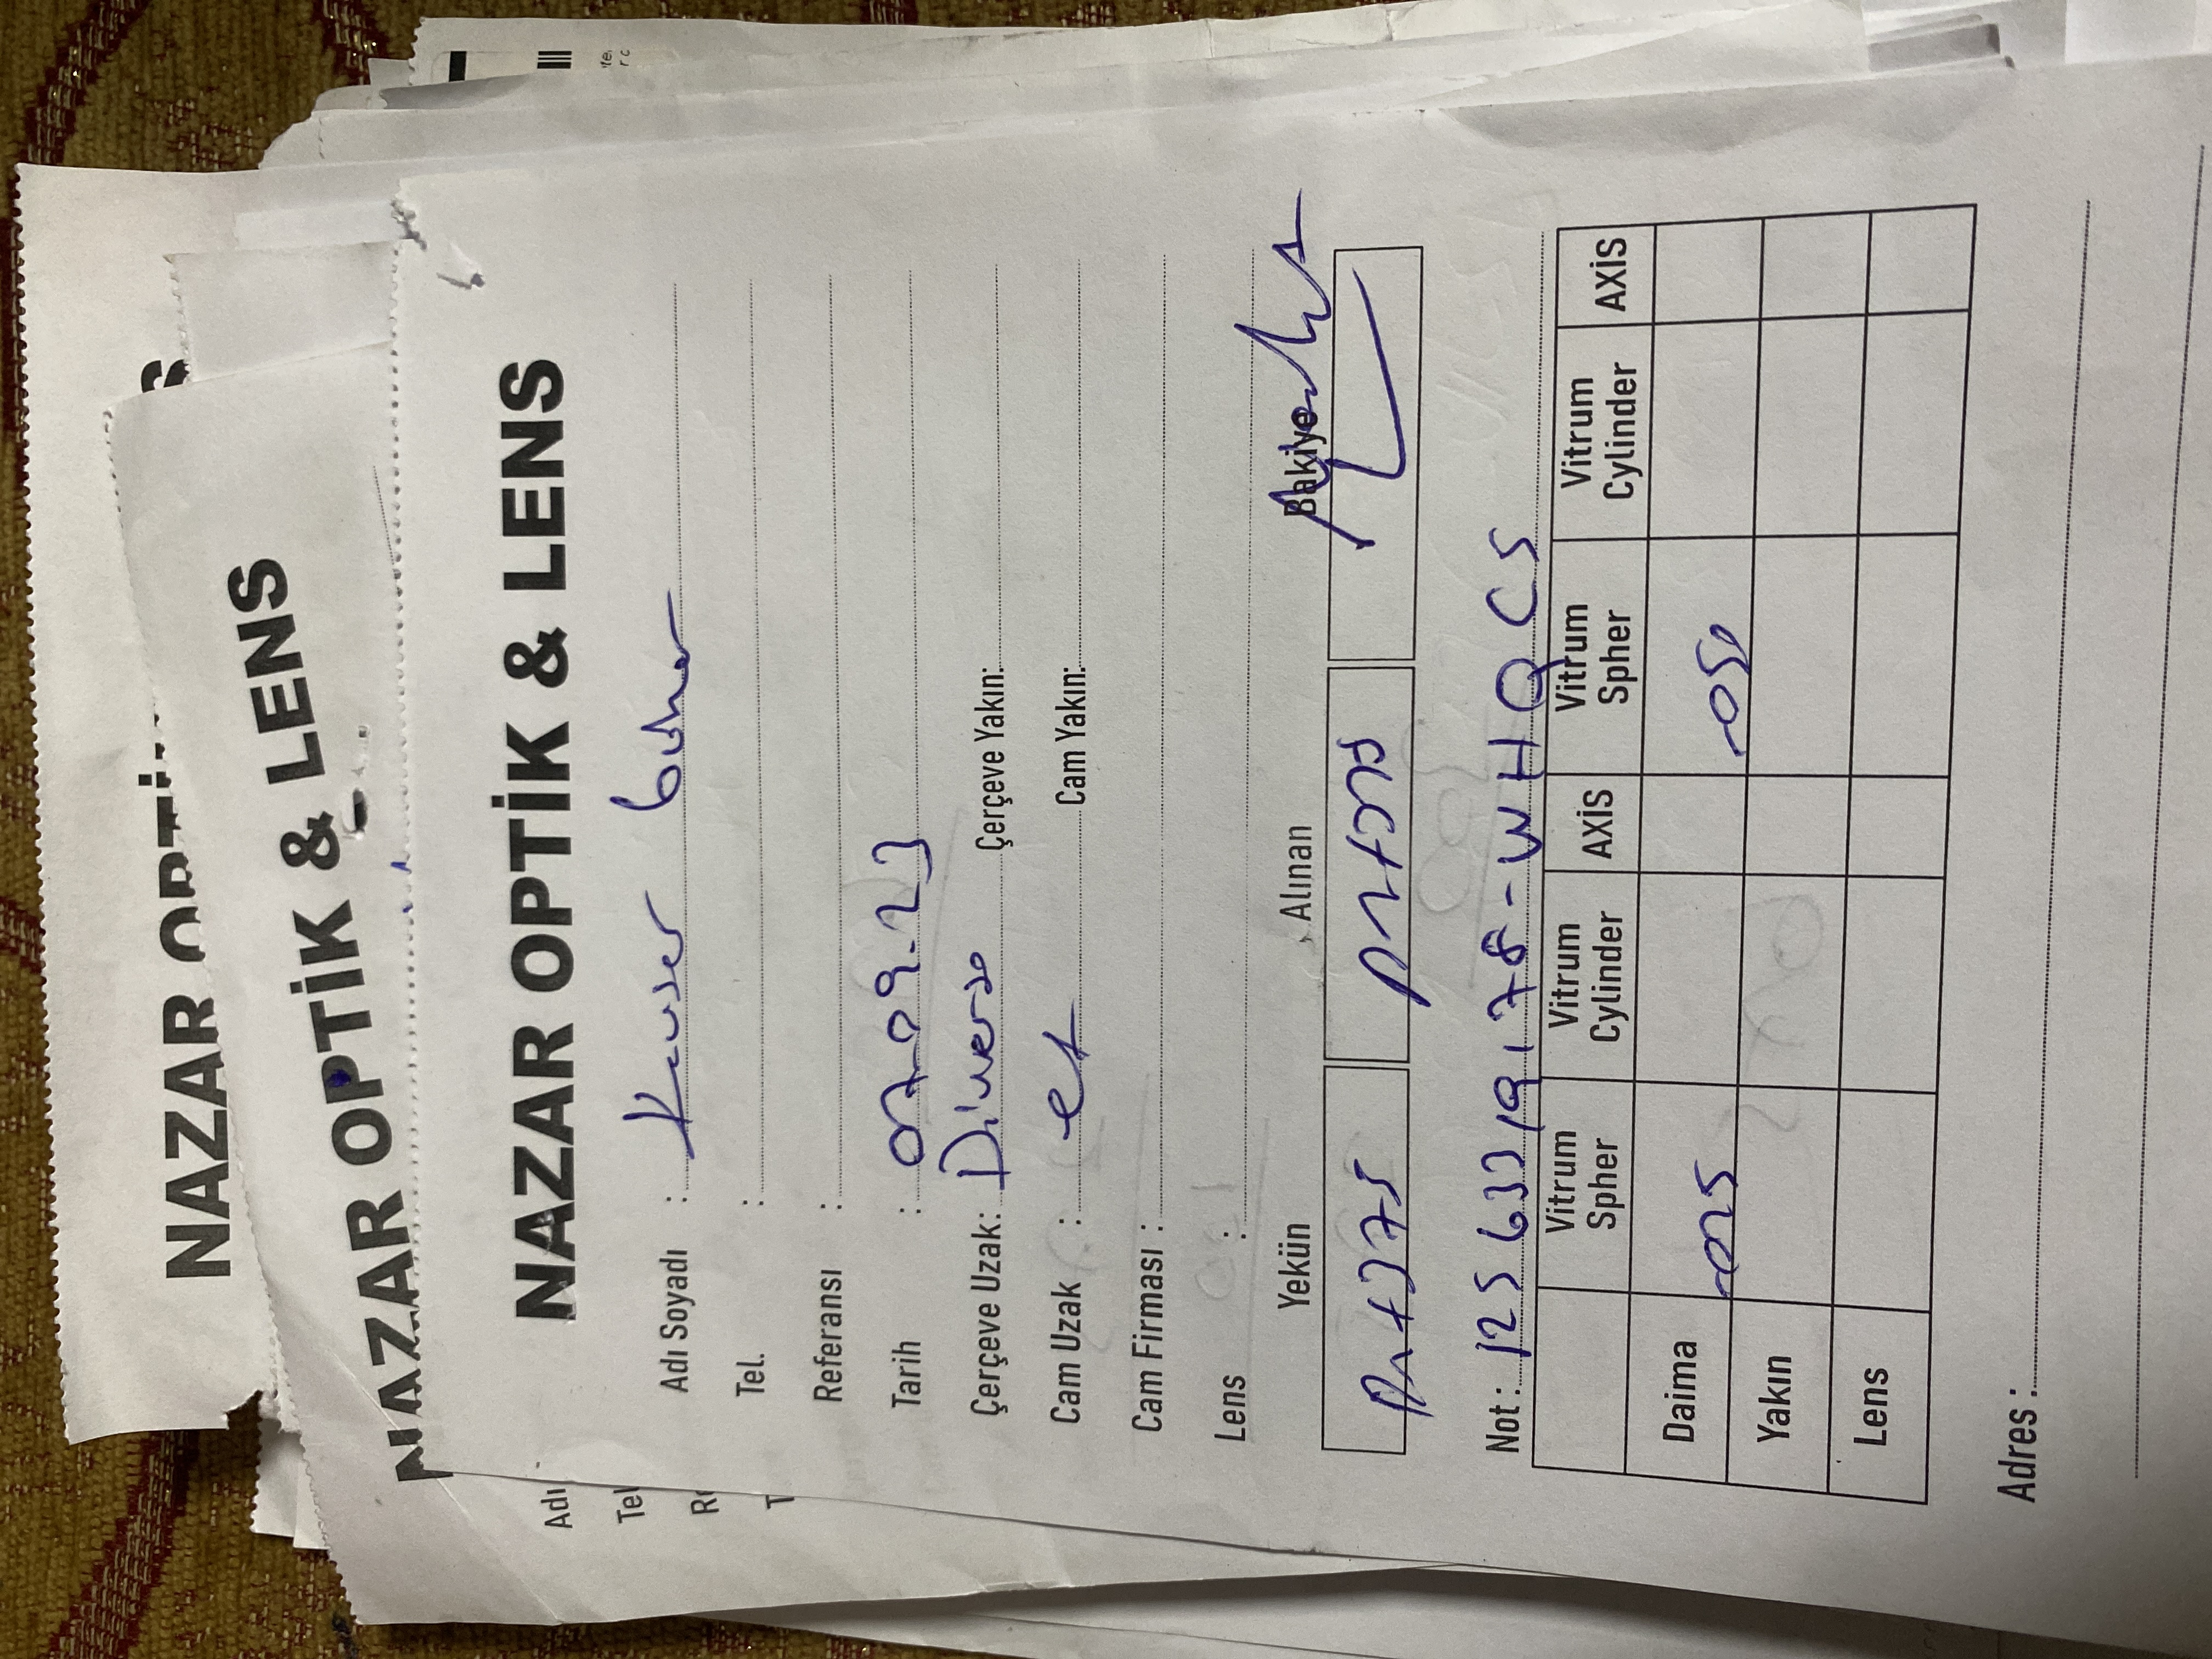 NAZAR
NAZAR OPTİK & LENS
Adı
Tel
NAZAR OPTİK & LENS
Adı Soyadı :
Tel. :
Referansı :
Tarih : 07.09.23
Çerçeve Uzak: Diverso Çerçeve Yakın:
Cam Uzak : et Cam Yakın:
Cam Firması :
Lens :
Yekün Alınan Bakiye
+375 +375
Not : 12563319178-WHQCS
Vitrum Spher Vitrum Cylinder AXİS Vitrum Spher Vitrum Cylinder AXİS
Daima -025 -050
Yakın
Lens
Adres :